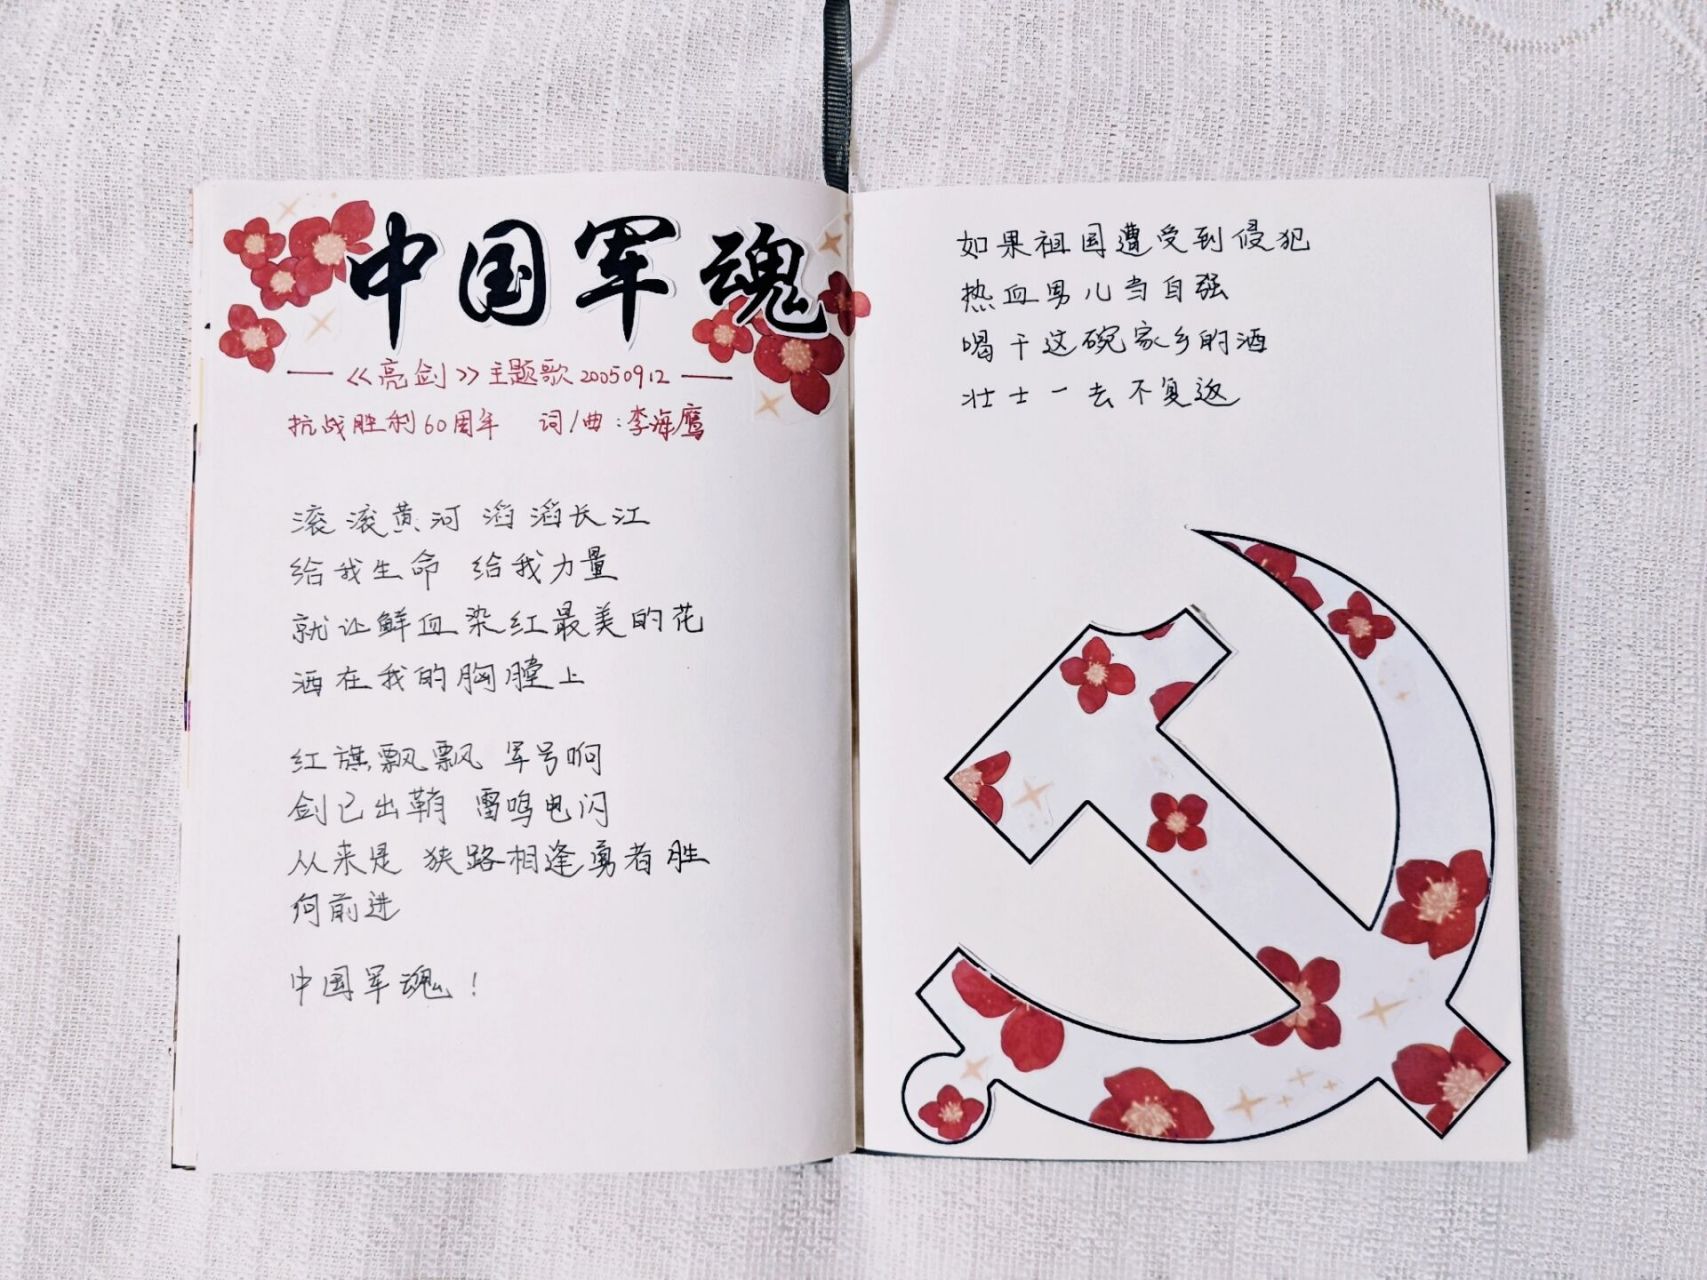 中国军魂
——《亮剑》主题歌20050912——
抗战胜利60周年 词/曲：李海鹰
滚滚黄河 滔滔长江
给我生命 给我力量
就让鲜血染红最美的花
洒在我的胸膛上
红旗飘飘 军号响
剑已出鞘 雷鸣电闪
从来是 狭路相逢勇者胜
向前进
中国军魂！
如果祖国遭受到侵犯
热血男儿当自强
喝干这碗家乡的酒
壮士一去不复返